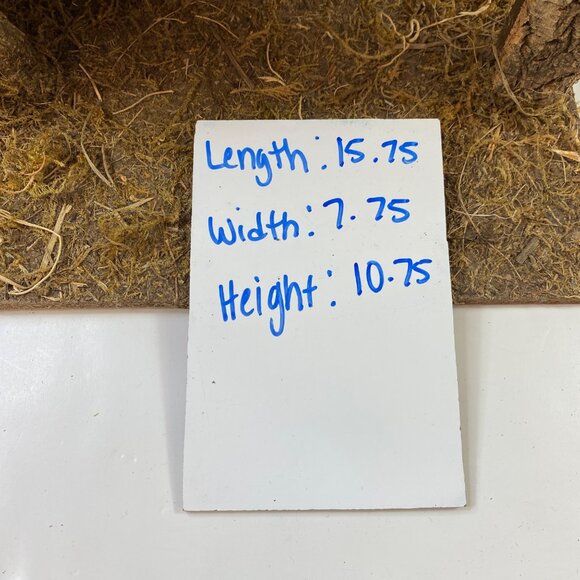 Length: 15.75
Width: 7.75
Height: 10.75